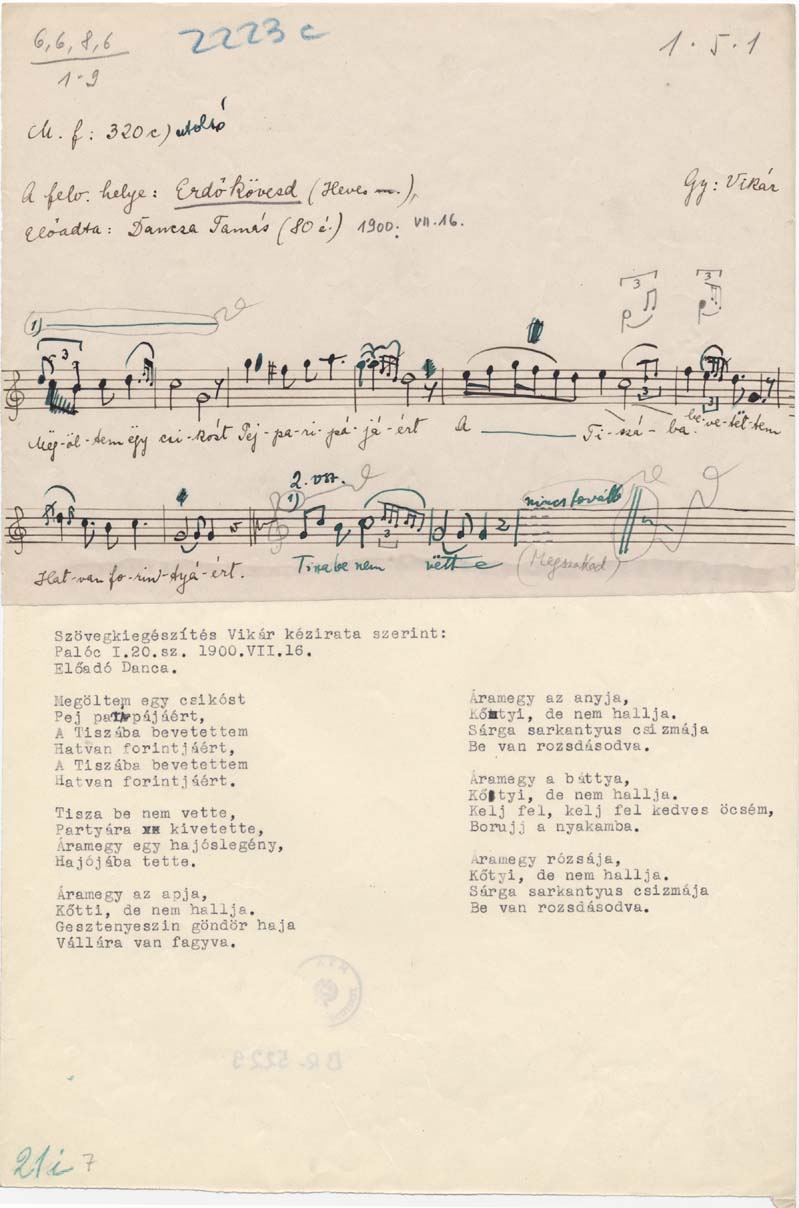 6, 6, 8, 6
2223 c
1 . 5 . 1
1-9
M. f: 320c) utolsó
A felv. helye: Erdőkövesd (Heves m.),
Gy: Vikár
Előadta: Dancza Tamás (80 é.) 1900. VII. 16.
3
3
1)
3
3
3
Meg-öl-tem egy csi-kóst Pej-pa-ri-pá-já-ért A Ti-szá-ba be-ve-tët-tem
2. vsz.
1)
nincs tovább
3
Hat-van fo-rint-tyá-ért.
Tisza be nem vëtte
(Megszakad)
Szövegkiegészítés Vikár kézirata szerint:
Palóc I.20.sz. 1900.VII.16.
Előadó Danca.
Megöltem egy csikóst
Pej paripájáért,
A Tiszába bevetettem
Hatvan forintjáért,
A Tiszába bevetettem
Hatvan forintjáért.
Tisza be nem vette,
Partyára kivetette,
Áramegy egy hajóslegény,
Hajójába tette.
Áramegy az apja,
Kőtti, de nem hallja.
Gesztenyeszin göndör haja
Vállára van fagyva.
Áramegy az anyja,
Kőtyi, de nem hallja.
Sárga sarkantyus csizmája
Be van rozsdásodva.
Áramegy a báttya,
Kőtyi, de nem hallja.
Kelj fel, kelj fel kedves öcsém,
Borujj a nyakamba.
Áramegy rózsája,
Kőtyi, de nem hallja.
Sárga sarkantyus csizmája
Be van rozsdásodva.
21i 7